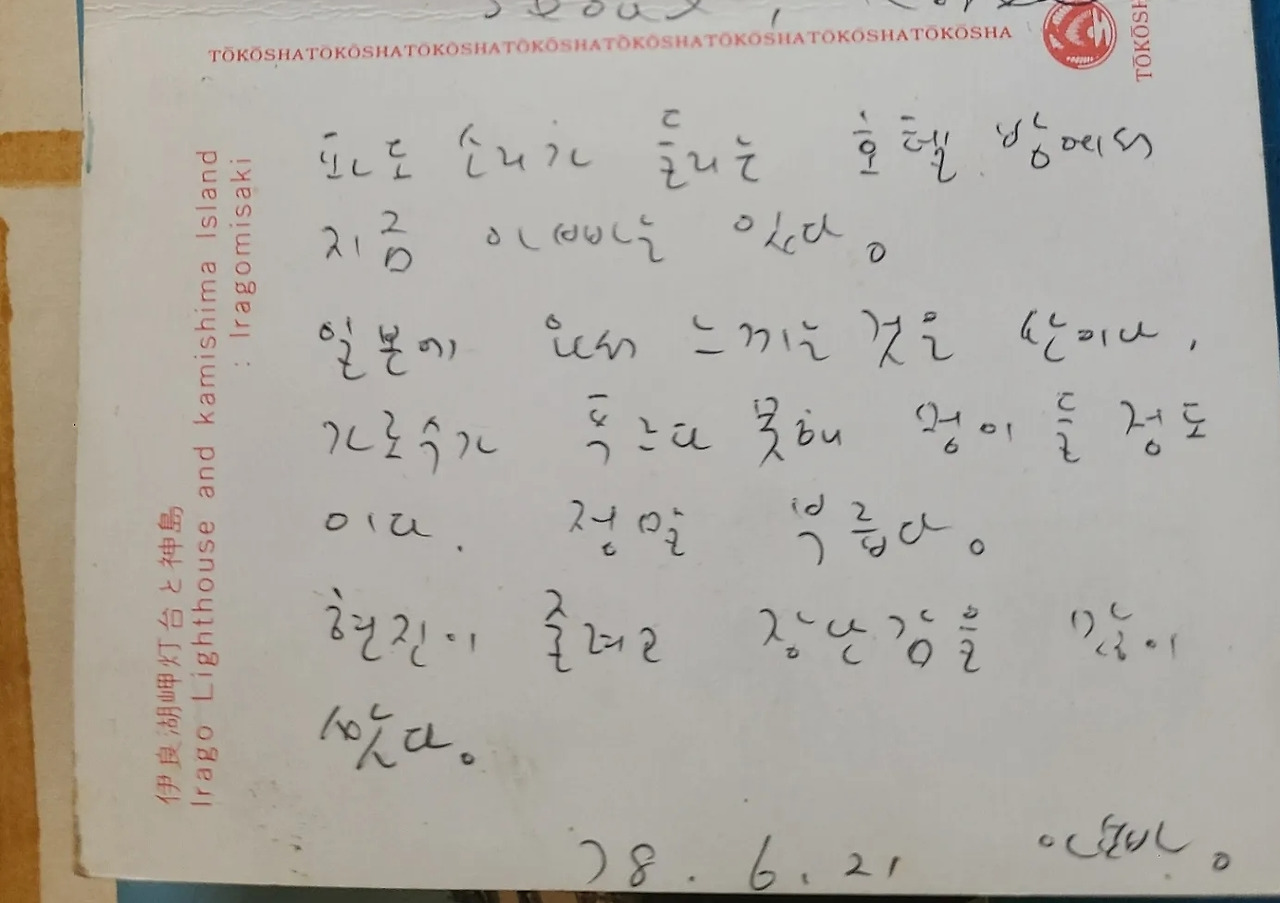 Seoul, Korea
TŌKŌSHATŌKŌSHATŌKŌSHATŌKŌSHATŌKŌSHATŌKŌSHATŌKŌSHATŌKŌSHA
TŌKŌSH
파도 소리가 들리는 호텔 방에서
지금 아빠는 있다。
일본에 와서 느끼는 것은 산이나,
가로수가 푸르다 못해 멍이 들 정도
이다. 정말 부릅다。
현진이 줄려고 장난감을 많이
샀다。
78. 6. 21 아빠。
伊良湖岬灯台と神島
Irago Lighthouse and kamishima Island
: Iragomisaki